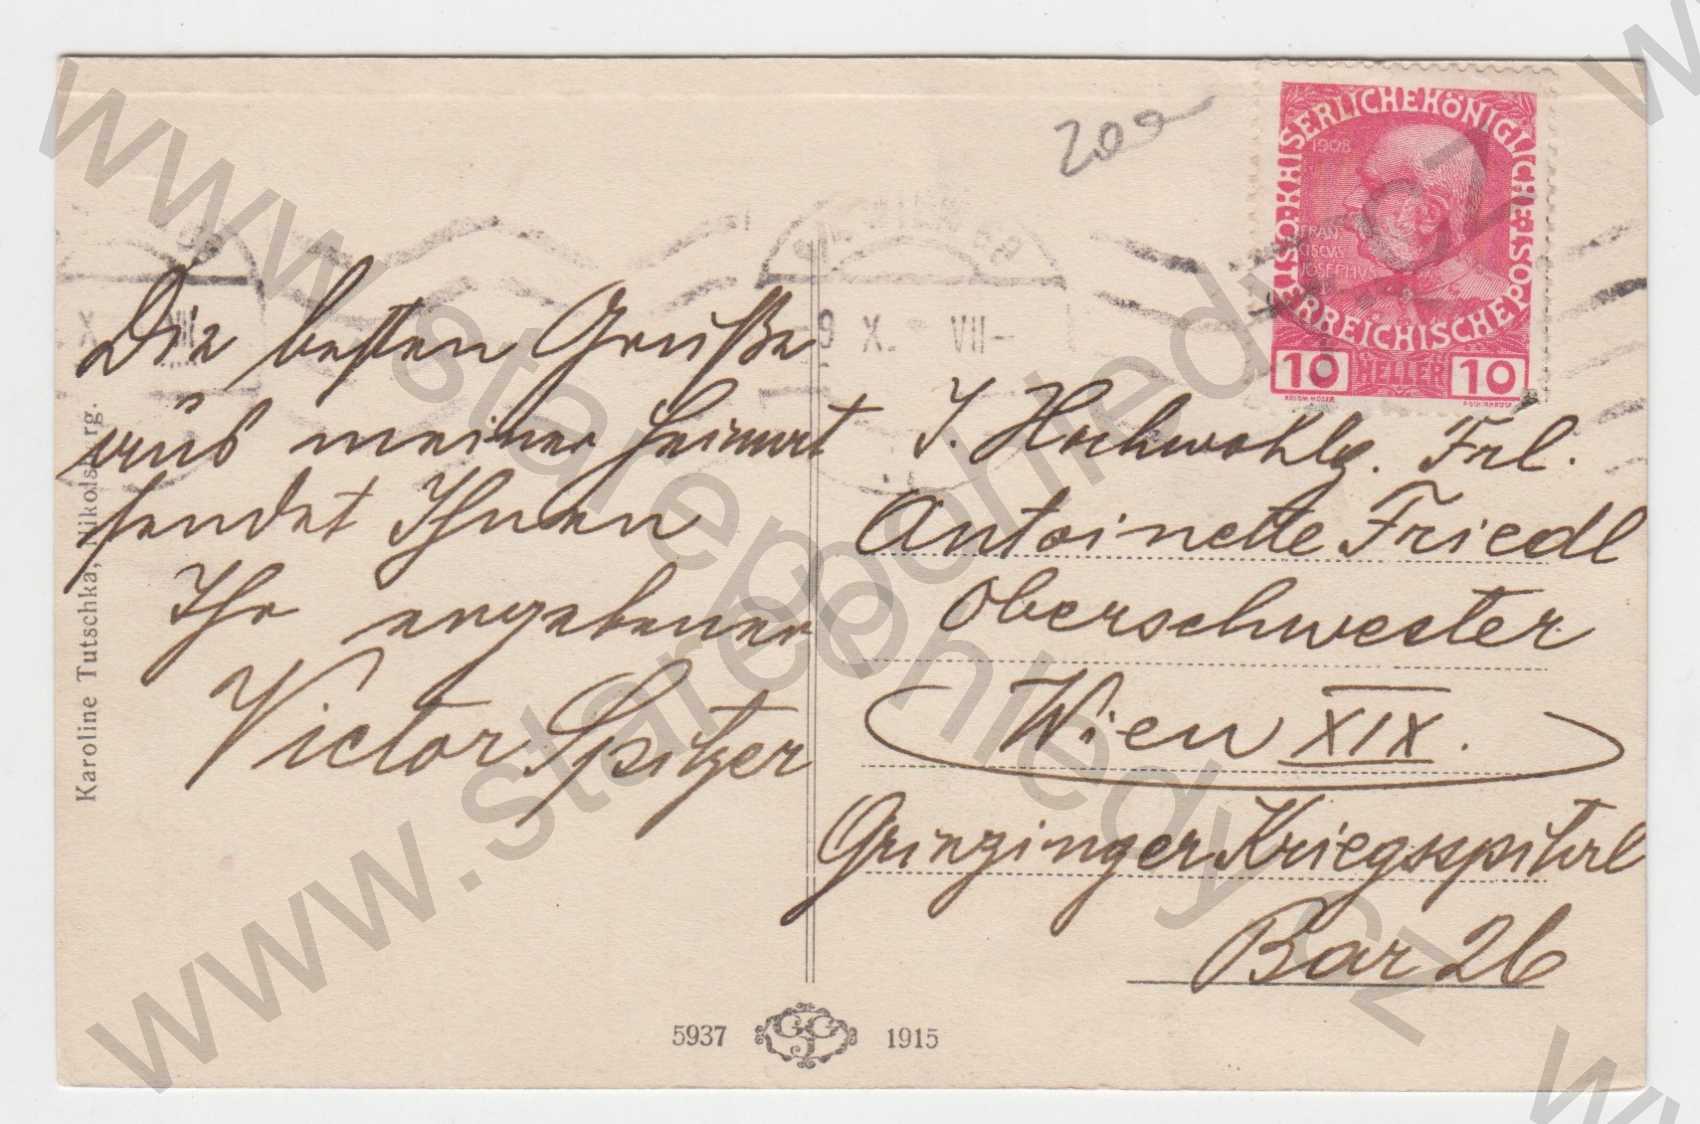 Die besten Grüße
aus meiner Heimat
sendet Ihnen
Ihr ergebener
Victor Spitzer
Karoline Tutschka, Nikolsburg.
200
9 X. VII–
KAISERLICHEKÖNIGLICHE
ÖSTERREICHISCHEPOST
1908
FRAN
CISCVS
JOSEPHVS
10 HELLER 10
I. Hochwohlg. Frl.
Antoinette Friedl
Oberschwester
Wien XIX.
Grinzinger Kriegsspital
Bar 26
5937 1915
www.starepohledy.cz
www.starepohledy.cz